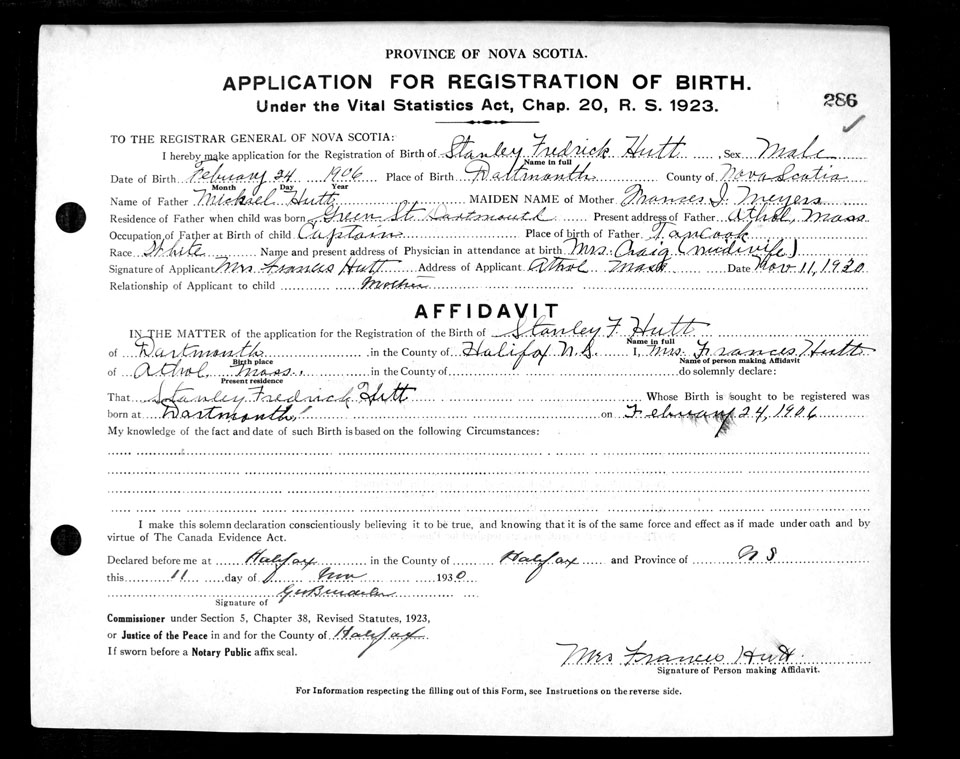 PROVINCE OF NOVA SCOTIA.
APPLICATION FOR REGISTRATION OF BIRTH.
286
Under the Vital Statistics Act, Chap. 20, R. S. 1923.
TO THE REGISTRAR GENERAL OF NOVA SCOTIA:
I hereby make application for the Registration of Birth of Stanley Fredrick Hutt, Sex Male
Name in full
Date of Birth February 24 1906 Place of Birth Dartmouth County of Nova Scotia
Month Day Year
Name of Father Michael Hutt MAIDEN NAME of Mother Frances J. Meyers
Residence of Father when child was born Green St. Dartmouth Present address of Father Athol, Mass
Occupation of Father at Birth of child Captain Place of birth of Father Tancook
Race White Name and present address of Physician in attendance at birth Mrs. Craig (midwife)
Signature of Applicant Mrs Frances Hutt Address of Applicant Athol Mass Date Nov 11, 1930
Relationship of Applicant to child Mother
AFFIDAVIT
IN THE MATTER of the application for the Registration of the Birth of Stanley F. Hutt
Name in full
of Dartmouth in the County of Halifax N.S. I, Mrs. Frances Hutt
Birth place Name of person making Affidavit
of Athol Mass. in the County of do solemnly declare:
Present residence
That Stanley Fredrick Hutt Whose Birth is sought to be registered was
born at Dartmouth on February 24, 1906
My knowledge of the fact and date of such Birth is based on the following Circumstances:
I make this solemn declaration conscientiously believing it to be true, and knowing that it is of the same force and effect as if made under oath and by
virtue of The Canada Evidence Act.
Declared before me at Halifax in the County of Halifax and Province of N S
this 11 day of Nov 1930
Signature of
Commissioner under Section 5, Chapter 38, Revised Statutes, 1923,
or Justice of the Peace in and for the County of Halifax
If sworn before a Notary Public affix seal.
Mrs Frances Hutt
Signature of Person making Affidavit.
For Information respecting the filling out of this Form, see Instructions on the reverse side.